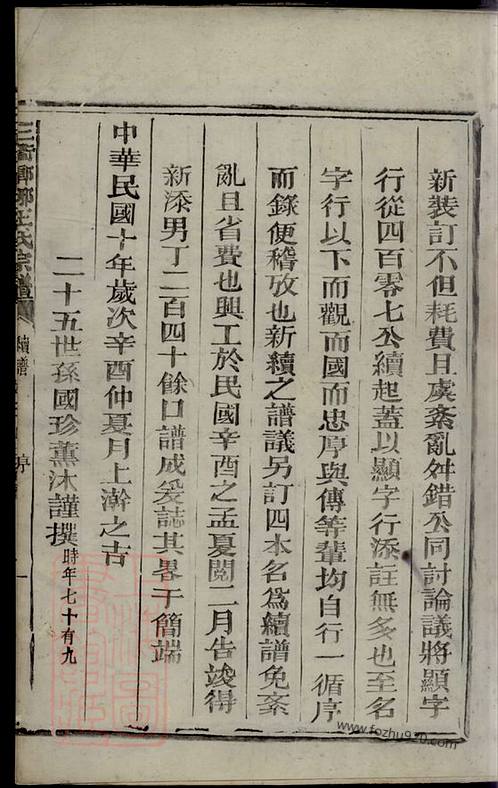 新裝訂不但耗費且虞紊亂舛錯公同討論議將顯字
行從四百零七公續起蓋以顯字行添註無多也至名
字行以下而觀而國而忠序與傳等輩均自行一循序
而錄便稽攷也新續之譜議另訂四本名爲續譜免紊
亂且省費也興工於民國辛酉之孟夏閱二月告竣得
新添男丁二百四十餘口譜成爰誌其畧于簡端
中華民國十年歲次辛酉仲夏月上澣之吉
二十五世孫國珍薰沐謹撰時年七十有九
王氏宗譜
續譜
序
一
www.fozhu920.com